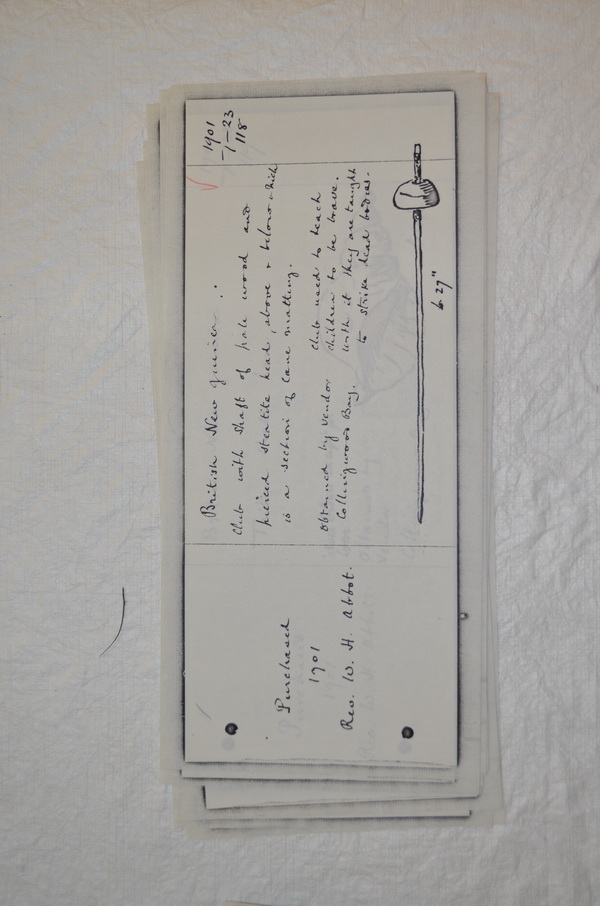 1901
-1-23
118
British New Guinea.
Club with shaft of pale wood and
pierced steatite head, above & below which
is a section of cane matting.
Obtained by vendor
Collingwood Bay.
Club used to teach
children to be brave.
With it they are taught
to strike dead bodies.
L. 29"
Purchased
1901
Rev. W. H. Abbot.